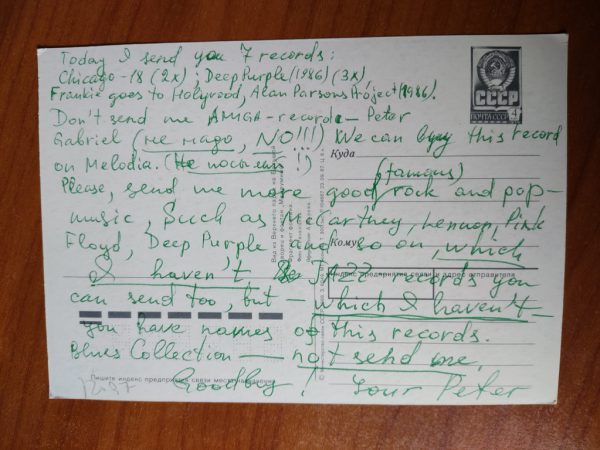 Today I send you 7 records:
Chicago-18 (2x); Deep Purple (1986) (3x),
Frankie goes to Holywood, Alan Parsons Project (1986).
Don't send me AMGA-record – Peter
Gabriel (не надо, NO!!!) We can buy this record
on Melodia. (Не посылай !:)
Please, send me more good (famous) rock and pop-
music, Such as McCarthey, Lennon, Pink
Floyd, Deep Purple and so on, which
I haven't JAZZ records you
can send too, but – which I haven't –
you have names of this records.
Blues Collection — not send me.
Goodby! Your Peter
СССР
ПОЧТА СССР
4
Куда
Кому
Индекс предприятия связи и адрес отправителя
Пишите индекс предприятия связи места назначения